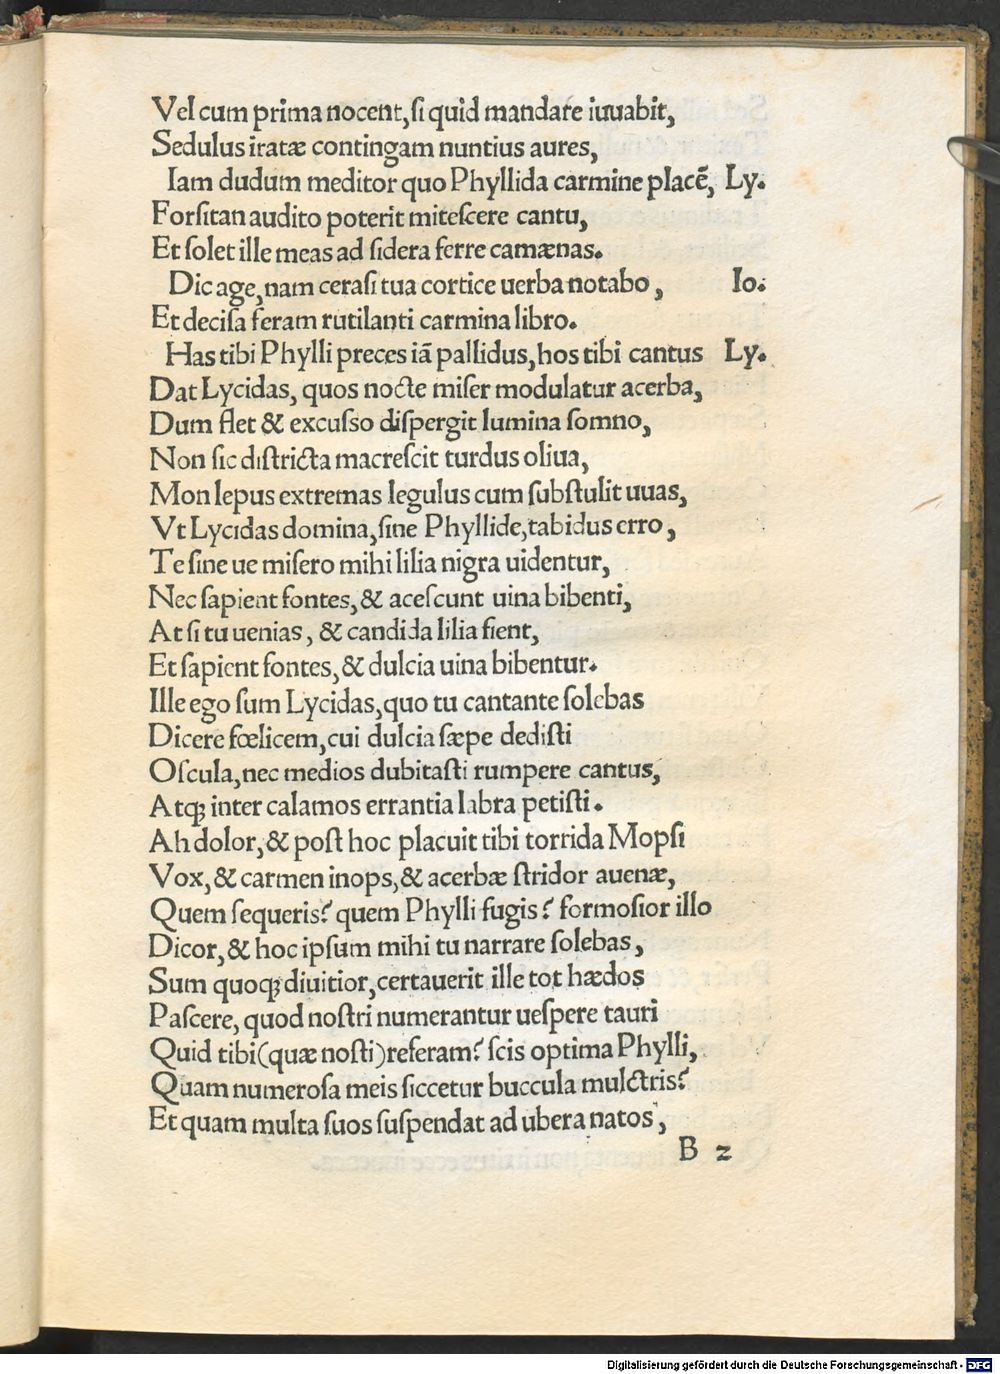 Vel cum prima nocent, ſi quid mandare iuuabit,
Sedulus iratæ contingam nuntius aures,
Iam dudum meditor quo Phyllida carmine placẽ, Ly.
Forſitan audito poterit miteſcere cantu,
Et ſolet ille meas ad ſidera ferre camænas.
Dic age, nam ceraſi tua cortice uerba notabo, Io.
Et deciſa feram rutilanti carmina libro.
Has tibi Phylli preces iã pallidus, hos tibi cantus Ly.
Dat Lycidas, quos nocte miſer modulatur acerba,
Dum flet & excuſſo diſpergit lumina ſomno,
Non ſic diſtricta macreſcit turdus oliua,
Mon lepus extremas legulus cum ſubſtulit uuas,
Vt Lycidas domina, ſine Phyllide, tabidus erro,
Te ſine ue miſero mihi lilia nigra uidentur,
Nec ſapient fontes, & aceſcunt uina bibenti,
At ſi tu uenias, & candida lilia fient,
Et ſapient fontes, & dulcia uina bibentur.
Ille ego ſum Lycidas, quo tu cantante ſolebas
Dicere fœlicem, cui dulcia ſæpe dediſti
Oſcula, nec medios dubitaſti rumpere cantus,
Atq; inter calamos errantia labra petiſti.
Ah dolor, & poſt hoc placuit tibi torrida Mopſi
Vox, & carmen inops, & acerbæ ſtridor auenæ,
Quem ſequeris? quem Phylli fugis? formoſior illo
Dicor, & hoc ipſum mihi tu narrare ſolebas,
Sum quoq; diuitior, certauerit ille tot hædos
Paſcere, quod noſtri numerantur ueſpere tauri
Quid tibi (quæ noſti) referam? ſcis optima Phylli,
Quam numeroſa meis ſiccetur buccula mulctris?
Et quam multa ſuos ſuſpendat ad ubera natos,
B 2
Digitalisierung gefördert durch die Deutsche Forschungsgemeinschaft - DFG